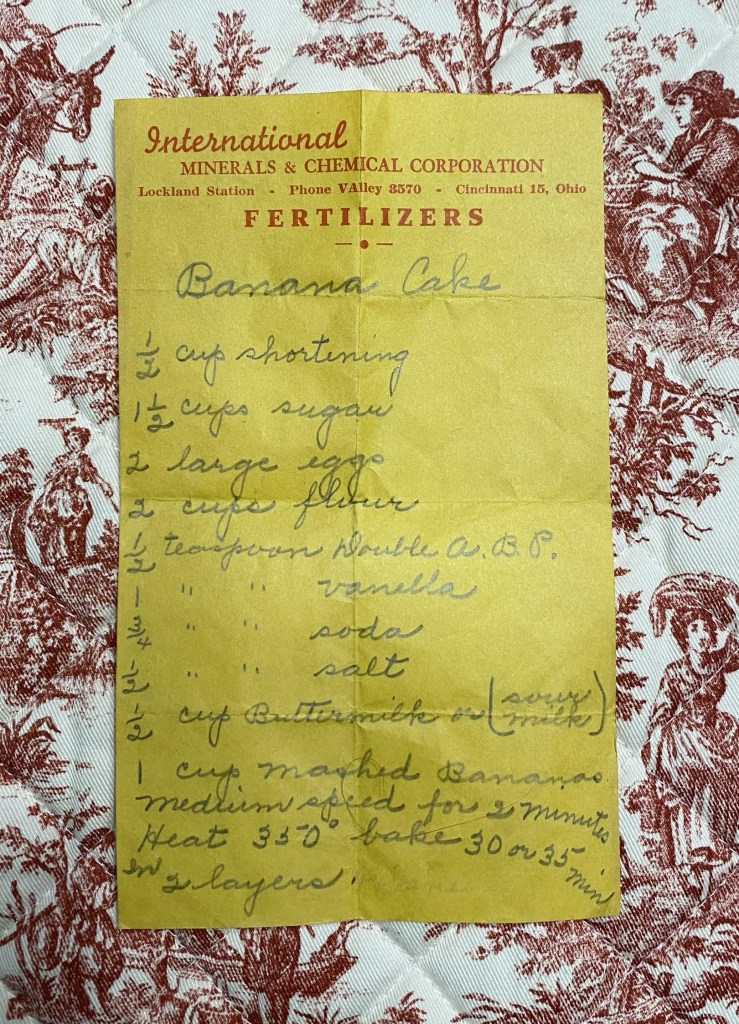 International
MINERALS & CHEMICAL CORPORATION
Lockland Station - Phone VAlley 3570 - Cincinnati 15, Ohio
FERTILIZERS
Banana Cake
1/2 cup shortening
1 1/2 cups sugar
2 large eggs
2 cups flour
1/2 teaspoon Double A. B. P.
1 " " vanella
3/4 " " soda
1/2 " " salt
1/2 cup Buttermilk or (sour milk)
1 cup mashed Bananas
Medium speed for 2 Minutes
Heat 350° bake 30 or 35 min
in 2 layers.